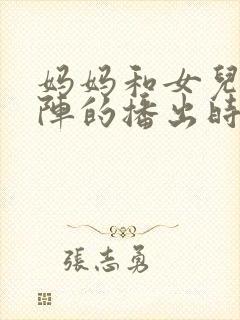 妈妈和女兒
陣的播出時
張志勇